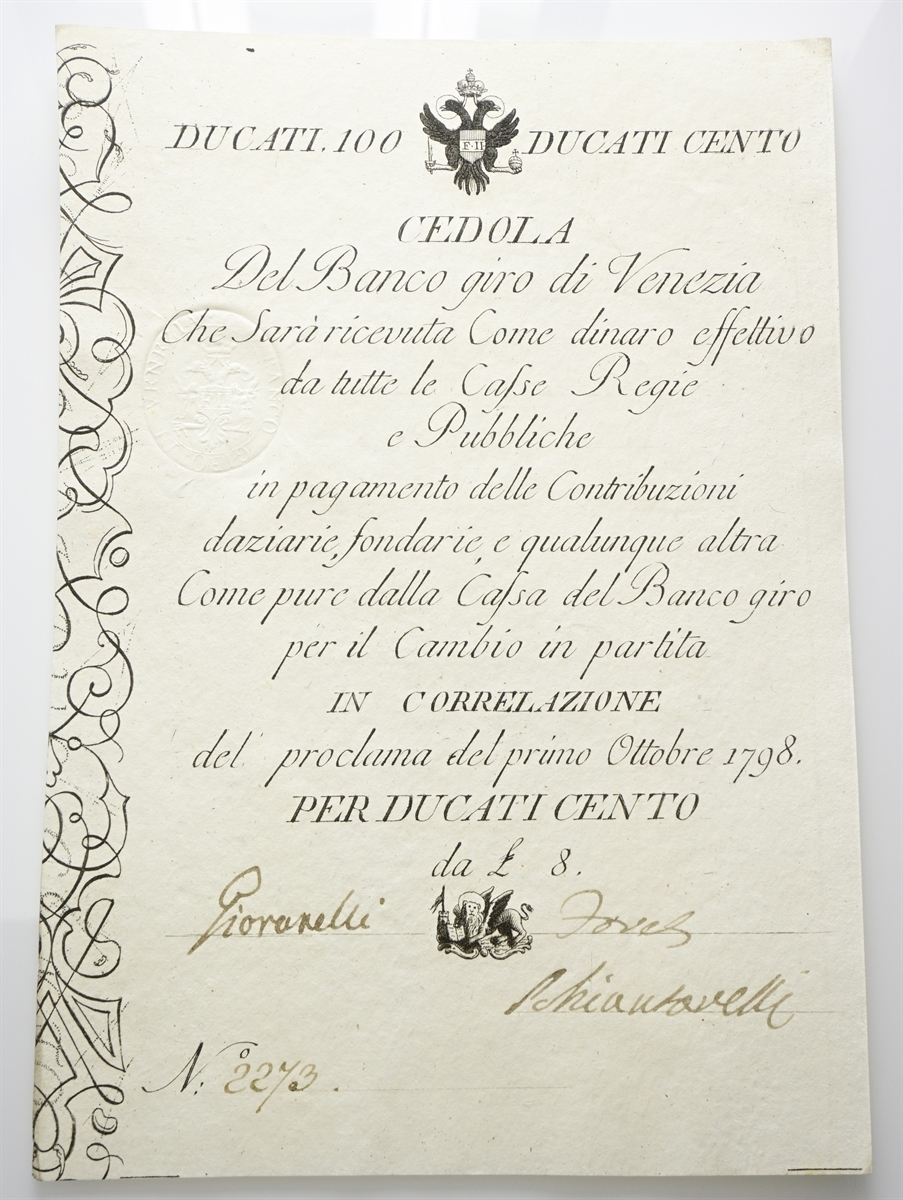 DUCATI. 100 F·II DUCATI CENTO
CEDOLA
Del Banco giro di Venezia
Che Sarà ricevuta Come dinaro effettivo
da tutte le Caſse Regie
e Pubbliche
in pagamento delle Contribuzioni
daziarie, fondarie, e qualunque altra
Come pure dalla Caſsa del Banco giro
per il Cambio in partita
IN CORRELAZIONE
del proclama del primo Ottobre 1798.
PER DUCATI CENTO
da £ 8.
Giovanelli
N.º 2273.